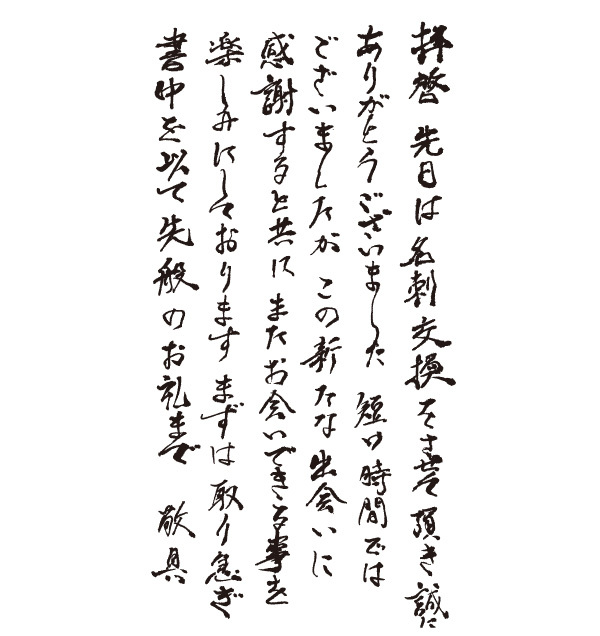 拝啓 先日は名刺交換をさせて頂き誠に
ありがとうございました 短い時間では
ございましたが この新たな出会いに
感謝すると共に またお会いできる事を
楽しみにしております まずは取り急ぎ
書中を以て先般のお礼まで 敬具